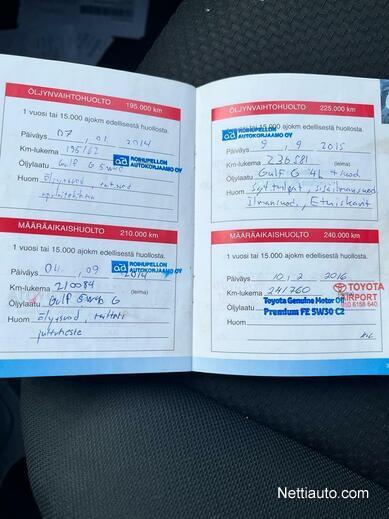 ÖLJYNVAIHTOHUOLTO 195.000 km
1 vuosi tai 15.000 ajokm edellisestä huollosta.
Päiväys 07 . 01 . 2014
Km-lukema 195162
ROIHUPELLON
AUTOKORJAAMO OY
Öljylaatu Gulf G 5W40
Huom öljynsuod, raitisuod
MÄÄRÄAIKAISHUOLTO 210.000 km
1 vuosi tai 15.000 ajokm edellisestä huollosta.
Päiväys 04 . 09 . 2014
ROIHUPELLON
AUTOKORJAAMO OY
Km-lukema 210084 (leima)
Öljylaatu Gulf 5W40 G
Huom öljysuod,
jarruneste
ÖLJYNVAIHTOHUOLTO 225.000 km
1 vuosi tai 15.000 ajokm edellisestä huollosta.
ROIHUPELLON
AUTOKORJAAMO OY
Päiväys 9 . 9 . 2015
Km-lukema 236581 (leima)
Öljylaatu Gulf G 4L + suod
Huom Syt.tulpat, sisäilmansuod
Ilmansuod,
MÄÄRÄAIKAISHUOLTO 240.000 km
1 vuosi tai 15.000 ajokm edellisestä huollosta.
Päiväys 10 . 2 . 2016
Km-lukema 241760
TOYOTA
AIRPORT
010 6158 640
Öljylaatu Toyota Genuine Motor Oil
Premium FE 5W30 C2
Huom
Nettiauto.com